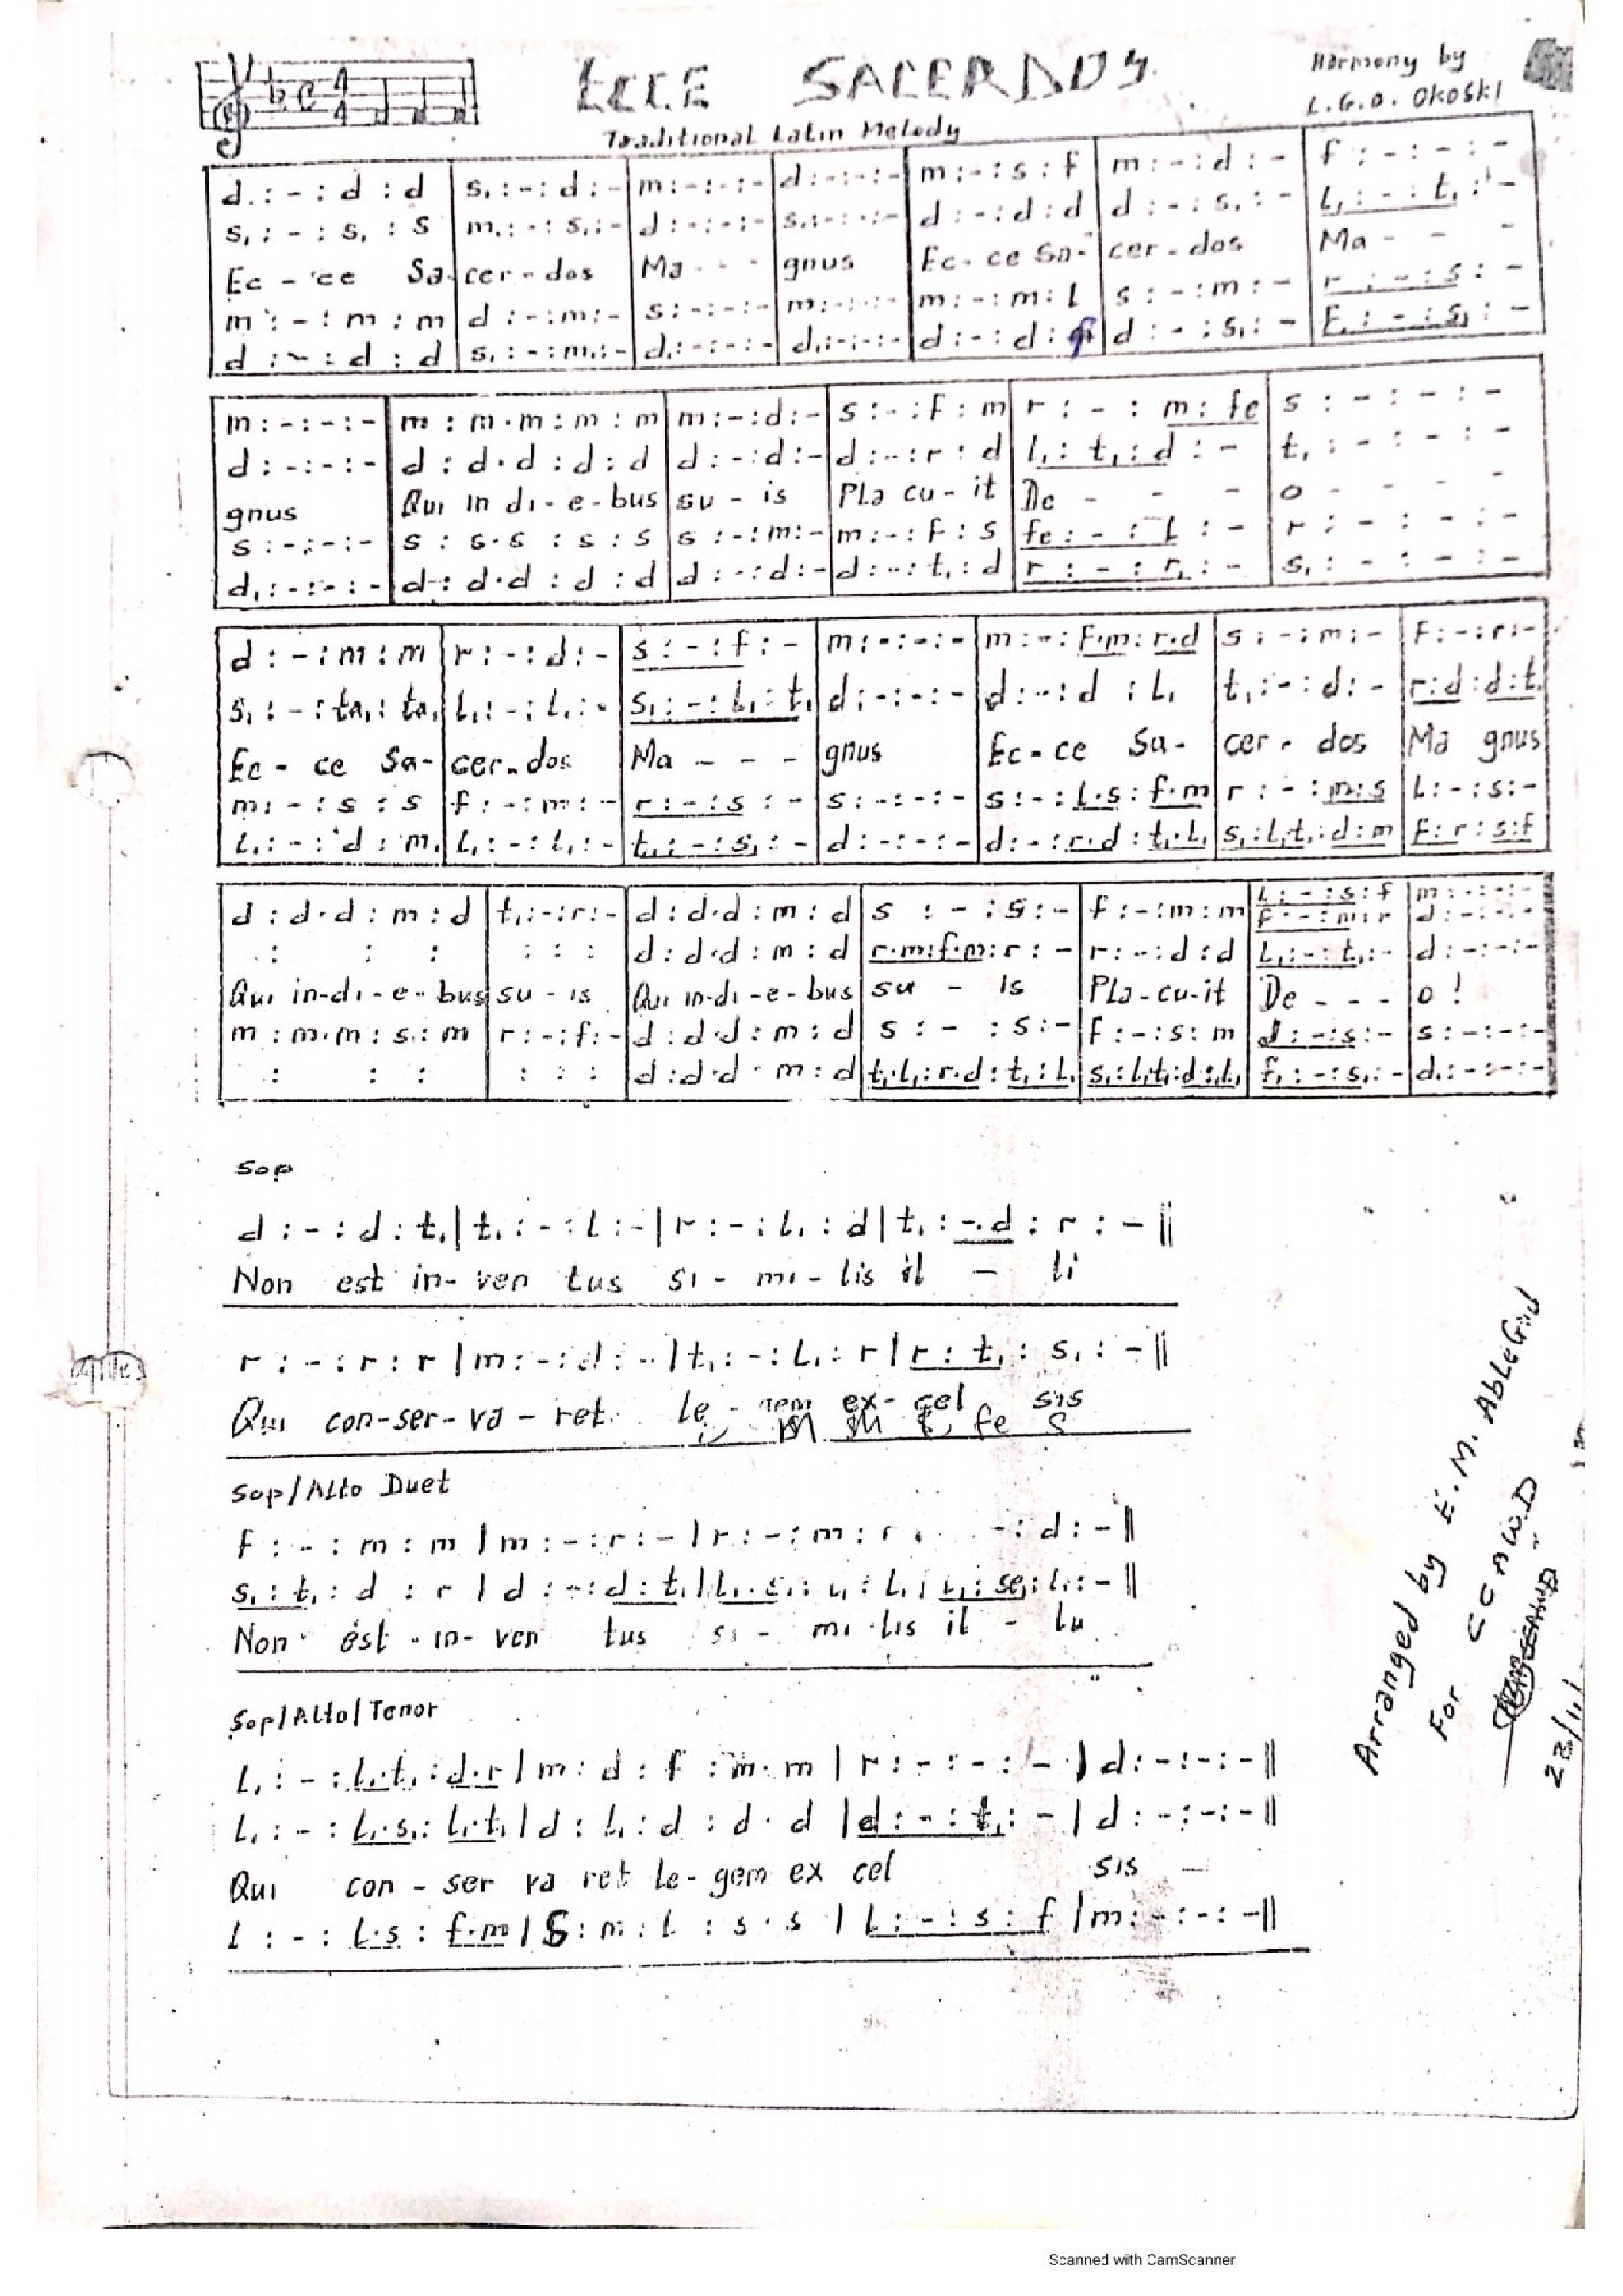 ECCE SACERDOS
Harmony by
L.G.O. OKOSKI
Traditional Latin Melody
d : - : d : d | s, : - : d : - | m : - : - : - | d : - : - : - | m : - : s : f | m : - : d : - | f : - : - : -
s, : - : s, : s | m, : - : s, : - | d : - : - : - | s, : - : - : - | d : - : d : d | d : - : s, : - | l, : - : t, : -
Ec - ce Sa- cer - dos Ma - - - gnus Ec - ce Sa- cer - dos Ma - - -
m : - : m : m | d : - : m : - | s : - : - : - | m : - : - : - | m : - : m : l | s : - : m : - | r : - : s : -
d : - : d : d | s, : - : m, : - | d, : - : - : - | d, : - : - : - | d : - : d : f | d : - : s, : - | f, : - : s, : -
m : - : - : - | m : m . m : m : m | m : - : d : - | s : - : f : m | r : - : m : fe | s : - : - : -
d : - : - : - | d : d . d : d : d | d : - : d : - | d : - : r : d | l, : t, : d : - | t, : - : - : -
gnus Qui in di - e - bus su - is Pla cu - it De - - - o - - - -
s : - : - : - | s : s . s : s : s | s : - : m : - | m : - : f : s | fe : - : l : - | r : - : - : -
d, : - : - : - | d : d . d : d : d | d : - : d : - | d : - : t, : d | r : - : r, : - | s, : - : - : -
d : - : m : m | r : - : d : - | s : - : f : - | m : - : - : - | m : - : f.m : r.d | s : - : m : - | f : - : r : -
s, : - : ta, : ta, | l, : - : l, : - | s, : - : l, : t, | d : - : - : - | d : - : d : l, | t, : - : d : - | r : d : d : t,
Ec - ce Sa- cer - dos Ma - - - gnus Ec - ce Sa - cer - dos Ma gnus
m : - : s : s | f : - : m : - | r : - : s : - | s : - : - : - | s : - : l.s : f.m | r : - : m : s | l : - : s : -
l, : - : d : m, | l, : - : l, : - | t, : - : s, : - | d : - : - : - | d : - : r.d : t,.l, | s, : l,.t, : d : m | f : r : s : f
d : d . d : m : d | t, : - : r : - | d : d . d : m : d | s : - : s : - | f : - : m : m | l : - : s : f | m : - : - : -
f : - : m : r | d : - : - : -
. : : : | : : : | d : d . d : m : d | r.m : f.m : r : - | r : - : d : d | l, : - : t, : - | d : - : - : -
Qui in-di - e - bus su - is Qui in-di - e - bus su - is Pla-cu-it De - - - o !
m : m . m : s : m | r : - : f : - | d : d . d : m : d | s : - : s : - | f : - : s : m | d : - : s : - | s : - : - : -
. : : : | : : : | d : d . d . m : d | t,.l, : r.d : t, : l, | s, : l,.t, : d : l, | f, : - : s, : - | d, : - : - : -
Sop
d : - : d : t, | t, : - : l : - | r : - : l, : d | t, : - . d : r : - ||
Non est in- ven tus si - mi - lis il - li
r : - : r : r | m : - : d : - | t, : - : l, : r | r : t, : s, : - ||
Qui con-ser-va - ret le - gem ex - cel sis
fe s
Sop/Alto Duet
f : - : m : m | m : - : r : - | r : - : m : r - : d : - ||
s, : t, : d : r | d : - : d : t, | l, . s, : l, : l, | l, : se, : l, : - ||
Non est - in- ven tus si - mi lis il - lu
Sop/Alto/Tenor
l, : - : l,.t, : d.r | m : d : f : m . m | r : - : - : - | d : - : - : - ||
l, : - : l,.s, : l,.t, | d : l, : d : d . d | d : - : t, : - | d : - : - : - ||
Qui con - ser va ret le - gem ex cel sis -
l : - : l.s : f.m | s : m : l : s . s | l : - : s : f | m : - : - : - ||
Arranged by E. M. AbLeGod
For CCAWD
23/11
Scanned with CamScanner